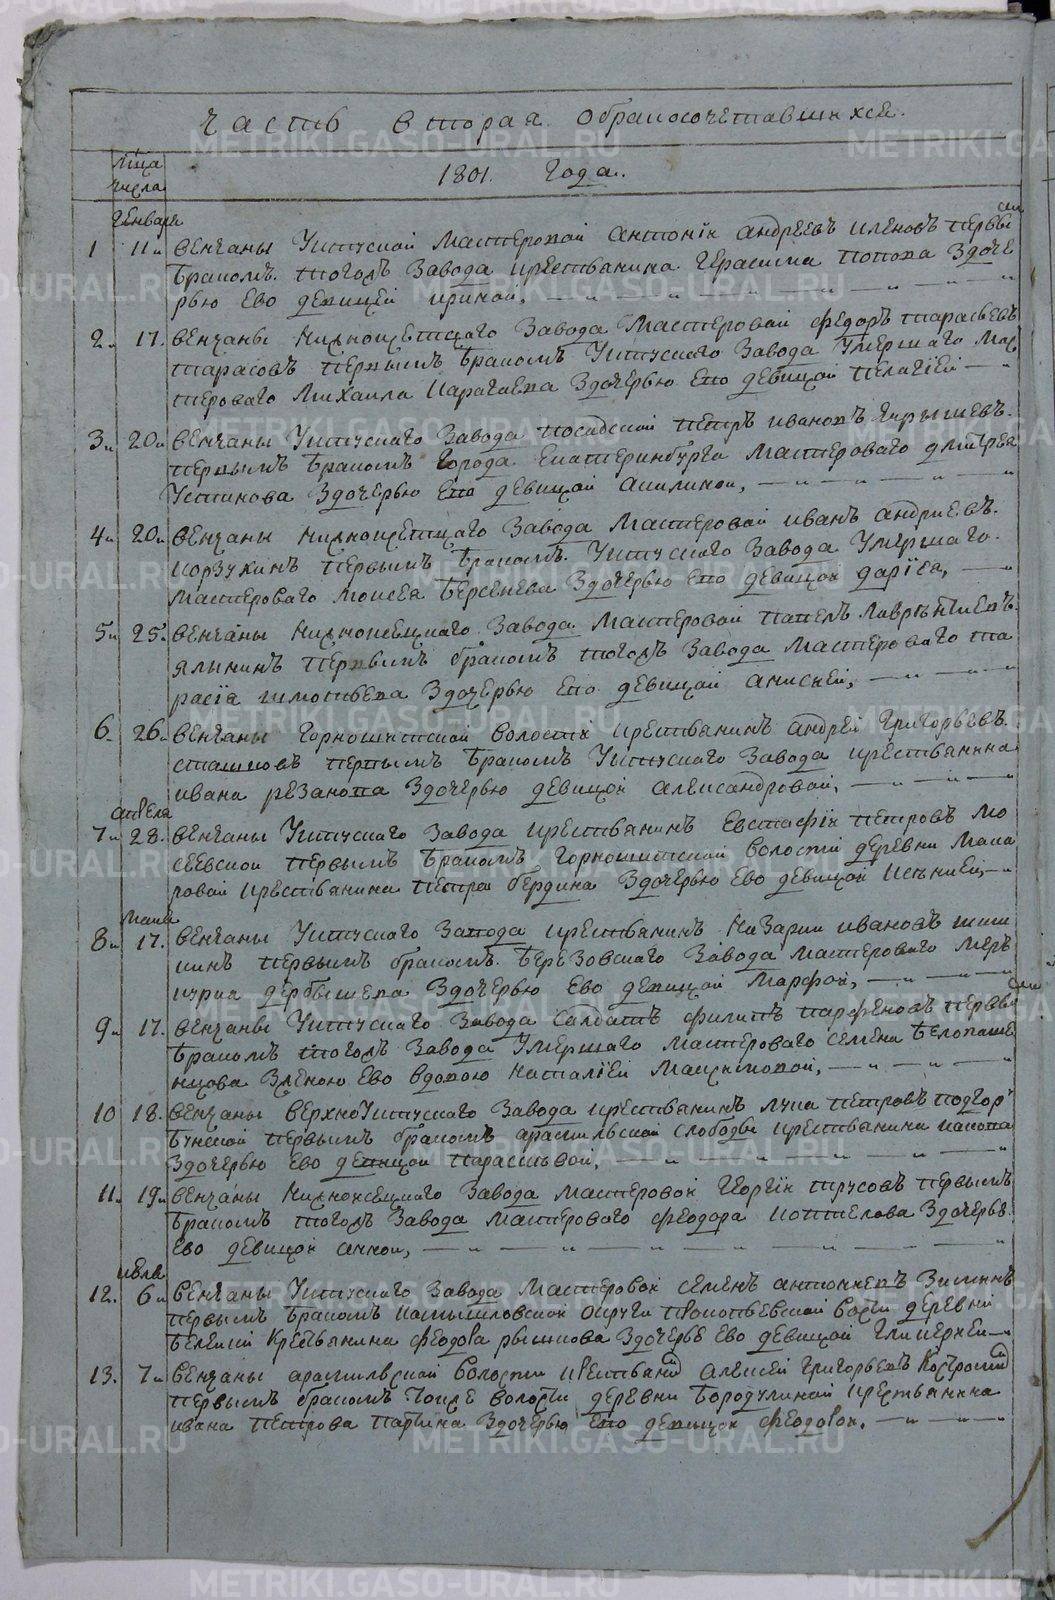 часть вторая обракосочетавшихся.
мца числа
1801. Года.
Генваря
1 11 венчаны Уктускои Мастеровои антонiи андреевъ иленовъ первы
бракомъ. тогожъ Завода крестьянина Герасима попова Здоче
рью Ево девицеи ириной,
2. 17. венчаны Нижноисетцкаго Завода Мастеровой федоръ тарасьевъ
тарасовъ первымъ бракомъ Уктускаго Завода Умершаго Мас
тероваго Михаила Карагаева Здочерью Ево девицой пелагiеи
3 20 венчаны Уктускаго Завода посадской петръ ивановъ
первымъ бракомъ Города Екатеринбурга Мастероваго дмитрея
Устинова Здочерью Ево девицой акилиной,
4 20 венчаны нижноисетцкаго Завода Мастеровой иванъ андриевъ.
корзухинъ первымъ бракомъ. Уктускаго Завода Умершаго.
Мастероваго Моисея берсенева Здочерью Ево девицой дарiея,
5 25. венчаны нижноисецкаго Завода Мастеровой павелъ лаврентиевъ
ялунинъ первымъ бракомъ тогожъ Завода Мастероваго та
расiя тимофеева Здочерью Ево девицой анисией,
6. 26. венчаны Горнощитской волости крестьянинъ андрей Григорьевъ
первымъ бракомъ Уктускаго Завода крестьянина
ивана резанова Здочерью девицой александровой,
апреля
7 28. венчаны Уктускаго Завода крестьянинъ Евстафiи петровъ Мо
сеевской первымъ бракомъ Горнощитской волости деревни Мака
ровой крестьянина петра бердина Здочерью Ево девицой ксениеи,
Маия
8 17. венчаны Уктускаго Завода крестьянинъ Назарии ивановъ шиш
кинъ первымъ бракомъ. березовскаго Завода Мастероваго Мер
куриа дербышева Здочерью Ево девицой Марфой,
9 17. венчаны Уктускаго Завода Салдатъ филипъ парфеновъ первы
бракомъ тогожъ Завода Умершаго Мастероваго семена белопаше
нцова Зженою Ево вдовою наталiеи Максимовой,
10 18. венчаны верхноУктускаго Завода крестьянинъ лука петровъ подкор
бунской первымъ бракомъ арамильской слободы крестьянина
Здочерью Ево девицой парасковой,
11. 19 венчаны нижноисецкаго Завода мастеровой Георгiи трусовъ первымъ
бракомъ тогожъ Завода Мастероваго феодора коптелова Здочерью
Ево девицой анной,
июля
12. 6 венчаны Уктускаго Завода Мастеровой семенъ антониевъ Зиминъ
первымъ бракомъ камышловской округи прокопьевской деревни
Крестьянина феодора рышкова Здочерью Ево девицой Гликериеи
13. 7 венчаны арамильской волости крестьянинъ алексей Григорьевъ Костромин
первымъ бракомъ тоиже волости деревни бородулиной крестьянина
ивана петрова паргина Здочерью Ево девицой феодорой.
METRIKI.GASO-URAL.RU